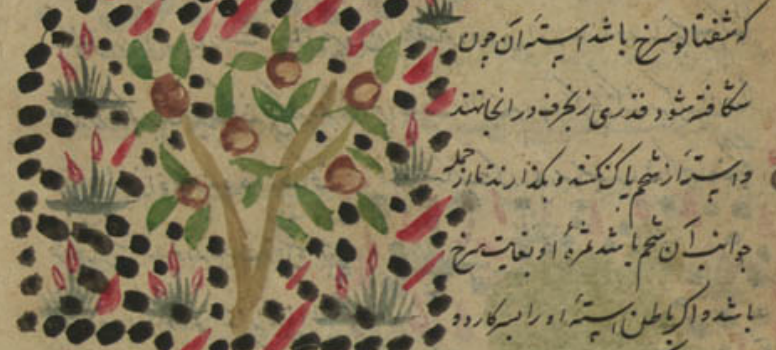 که شفتالو سرخ باشد استهٔ آن چون
شکافته شود قدری زنجرف در انجا نهند
و استه را از شحم پاک نکنند و بگذارند تا از جمله
جوانب آن شحم باشد ثمرهٔ او بغایت سرخ
باشد و اگر باطن استهٔ او را بسر کارد و